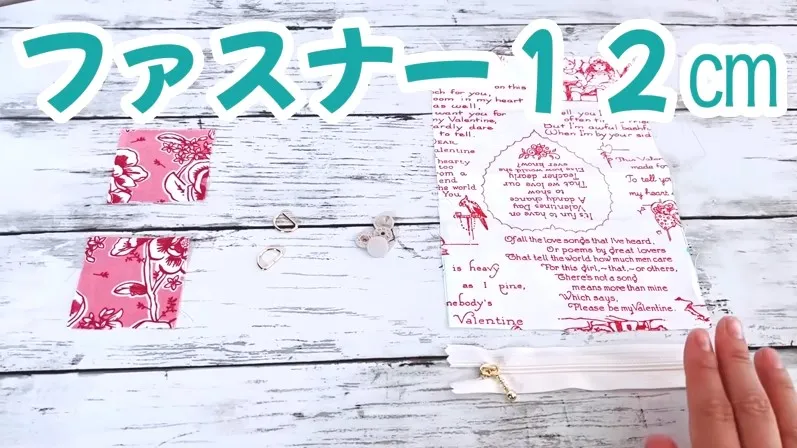 ファスナー12㎝
on this
ch for you,
oom in my heart
as well,
want you for
my Valentine,
ardly dare
to tell.
tell you I
often ti
But I'm awful bashf
When I'm by your sid
DEAR
Valentine
hearty
too
from a
end
the world
You.
It's fun to have on
Valentines Day
A dandy chance
to show
That we love our
Teacher dearly
Else how would she
ever know?
This Valen
made for
To tell you
my heart
Of all the love songs that I've heard,
Or poems by great lovers
That tell the world how much men care
For this girl,—that,—or others,
There's not a song
means more than mine
Which says,
Please be my Valentine.
is heavy
as I pine,
mebody's
Valentine